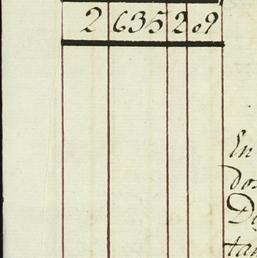 2 635 2.9
En
do
De
tan